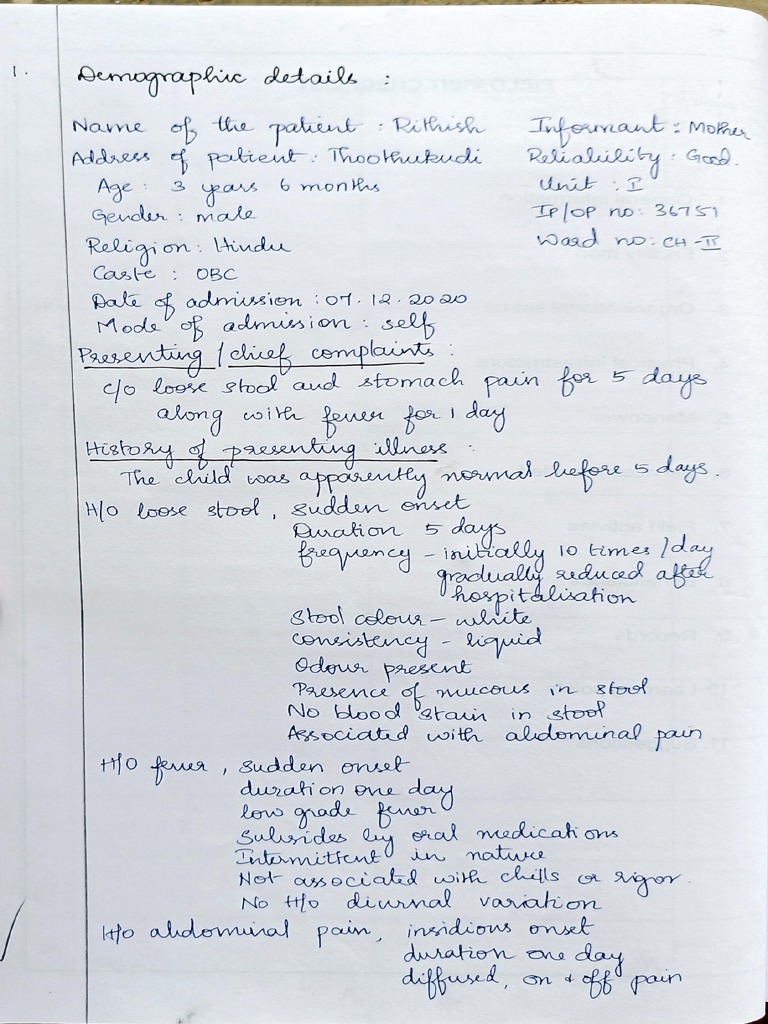 1. Demographic details :
Name of the patient : Rithish Informant : Mother
Address of patient : Thoothukudi Reliability : Good.
Age : 3 years 6 months Unit : I
Gender : male IP/OP no : 36751
Religion : Hindu Ward no : CH-II
Caste : OBC
Date of admission : 07.12.2020
Mode of admission : self
Presenting / chief complaints :
c/o loose stool and stomach pain for 5 days
along with fever for 1 day
History of presenting illness :
The child was apparently normal before 5 days.
H/O loose stool, sudden onset
Duration 5 days
frequency - initially 10 times /day
gradually reduced after
hospitalisation
Stool colour - white
consistency - liquid
Odour present
Presence of mucous in stool
No blood stain in stool
Associated with abdominal pain
H/O fever, sudden onset
duration one day
low grade fever
Subsides by oral medications
Intermittent in nature
Not associated with chills or rigor.
No H/o diurnal variation
H/o abdominal pain, insidious onset
duration one day
diffused, on & off pain